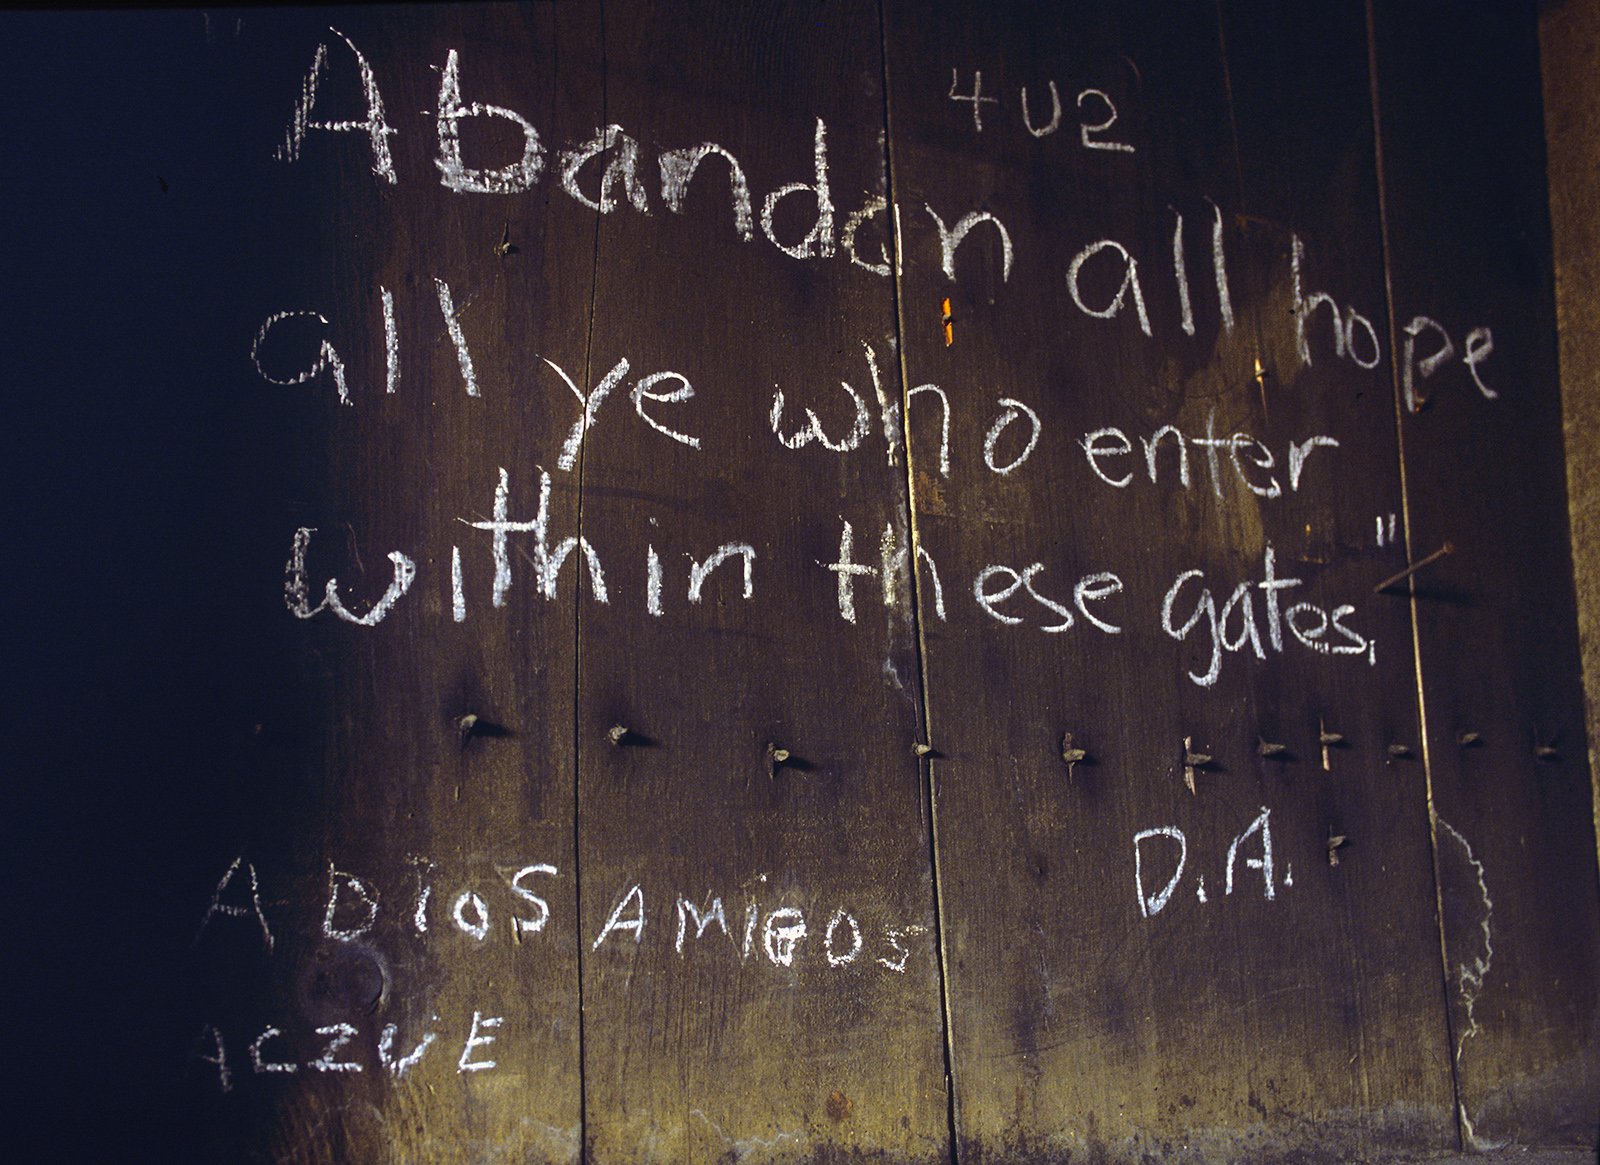 4U2
Abandon all hope
all ye who enter
within these gates."
D.A.
ADIOS AMIGOS